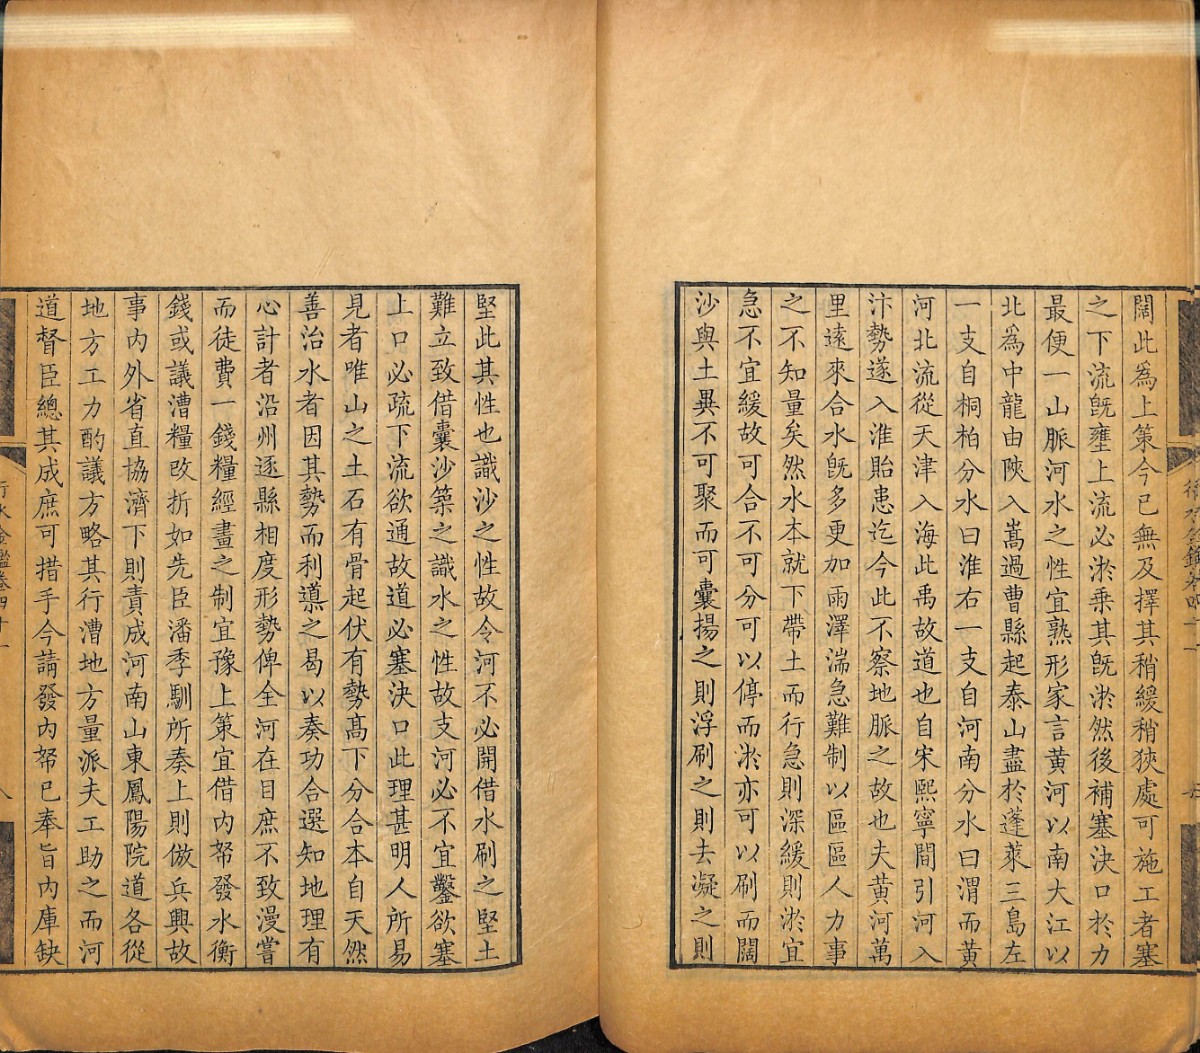 闊此為上策今已無及擇其稍緩稍狹處可施工者塞
之下流既壅上流必淤乗其既淤然後補塞決口於力
最便一山脈河水之性宜熟形家言黄河以南大江以
北為中龍由陝入嵩過曹縣起泰山盡於蓬萊三島左
一支自桐柏分水曰淮右一支自河南分水曰渭而黄
河北流從天津入海此禹故道也自宋熙寧間引河入
汴勢遂入淮貽患迄今此不察地脈之故也夫黄河萬
里遠來合水既多更加雨澤湍急難制以區區人力事
之不知量矣然水本就下帶土而行急則深緩則淤宜
急不宜緩故可合不可分可以停而淤亦可以刷而闊
沙與土異不可聚而可囊揚之則浮刷之則去凝之則
堅此其性也識沙之性故令河不必開借水刷之堅土
難立致借囊沙築之識水之性故支河必不宜鑿欲塞
上口必疏下流欲通故道必塞決口此理甚明人所易
見者唯山之土石有骨起伏有勢髙下分合本自天然
善治水者因其勢而利導之曷以奏功合選知地理有
心計者沿州逐縣相度形勢俾全河在目庶不致漫嘗
而徒費一錢糧經畫之制宜豫上策宜借内帑發水衡
錢或議漕糧改折如先臣潘季馴所奏上則倣兵興故
事内外省直協濟下則責成河南山東鳳陽院道各從
地方工力酌議方略其行漕地方量派夫工助之而河
道督臣總其成庶可措手今請發内帑已奉旨内庫缺
行水金鑑卷四十一